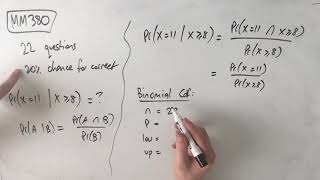 MM380
22 questions
20% chance for correct
Pr(X=11 | X≥8) = ?
Pr(A | B) = Pr(A ∩ B) / Pr(B)
Pr(X=11 | X≥8) = Pr(X=11 ∩ X≥8) / Pr(X≥8)
= Pr(X=11) / Pr(X≥8)
Binomial Cdf:
n = 22
p =
low =
up =